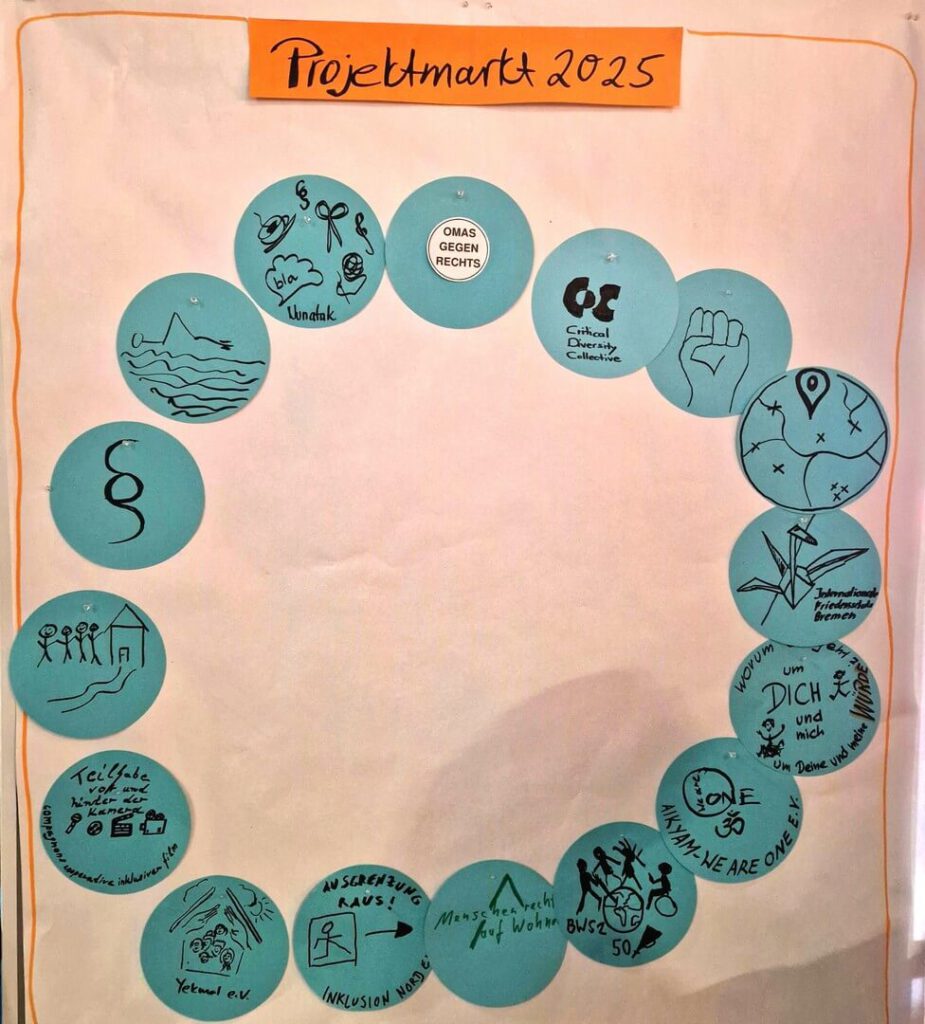 Projektmarkt 2025
bla
Nunatak
OMAS
GEGEN
RECHTS
CDC
Critical
Diversity
Collective
Internationale
Friedensschule
Bremen
worum
um
DICH
und
mich
um Deine und meine WÜRDE
we are
ONE
ॐ
AIKYAM-WE ARE ONE E.V.
BWS2
50
Menschenrecht
auf Wohn
AUSGRENZUNG
RAUS!
INKLUSION NORD
Yekmal e.V.
Teilhabe
vor und
hinter der
Kamera
compagnons cooperative inklusiver film
§
§